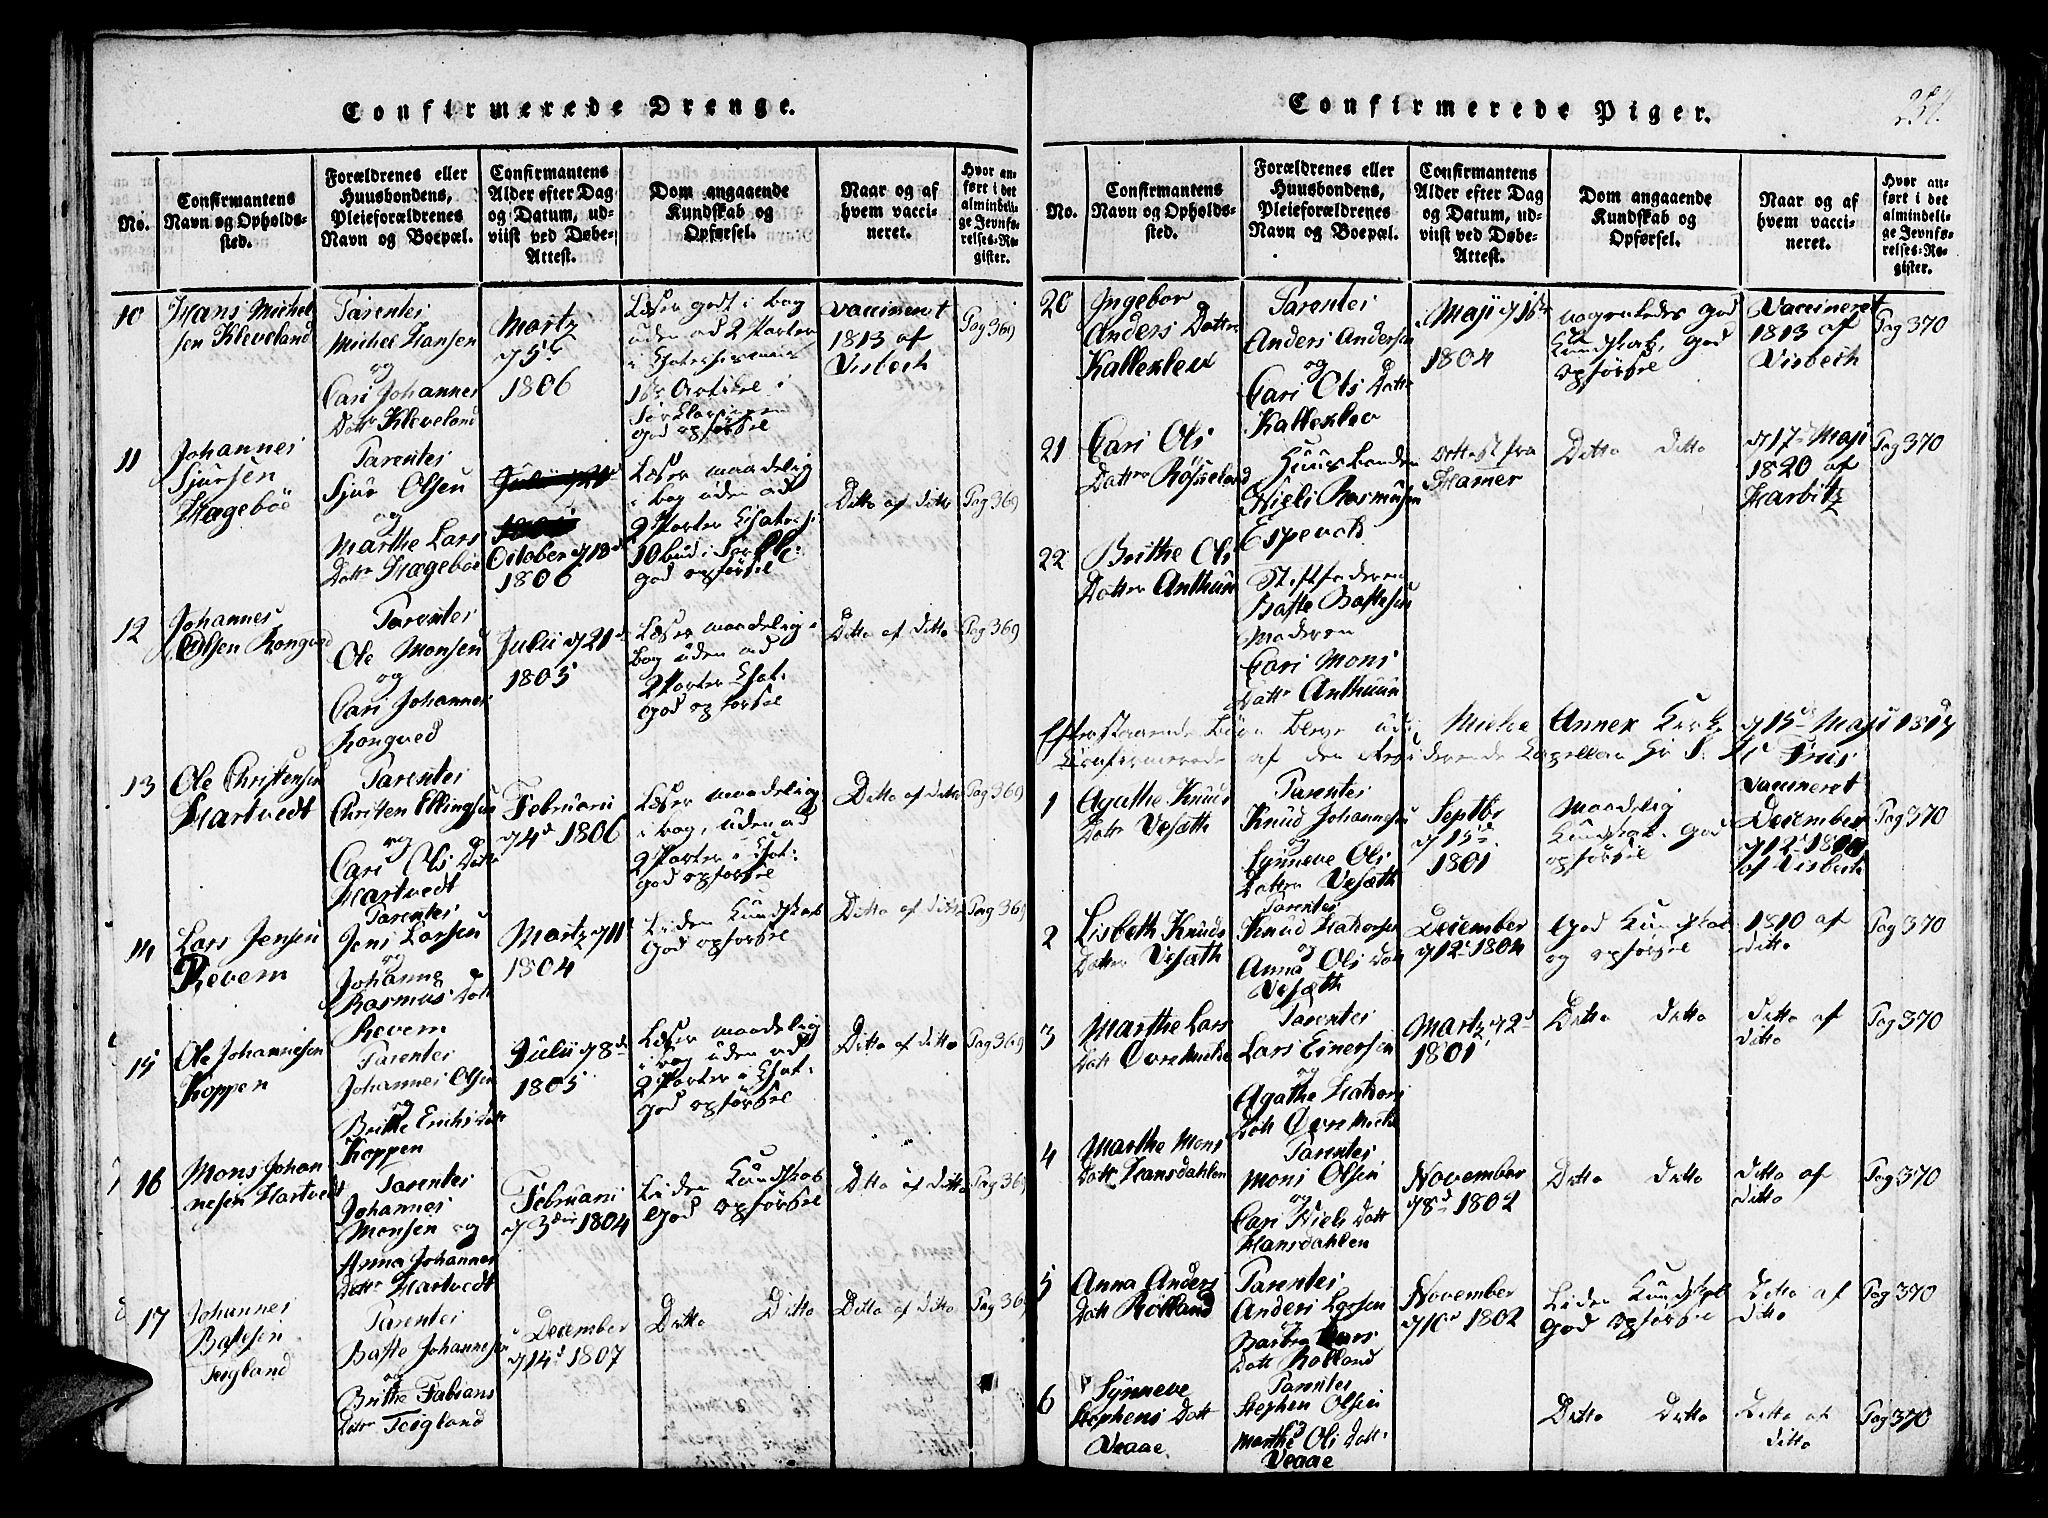 Confirmerede Drenge.
No.
Confirmantens
Navn og Opholds-
sted.
Forældrenes eller
Huusbondens,
Pleieforældrenes
Navn og Boepæl.
Confirmantens
Alder efter Dag
og Datum, ud-
viist ved Døbe-
Attest.
Dom angaaende
Kundskab og
Opførsel.
Naar og af
hvem vacci-
neret.
Hvor an-
ført i det
almindeli-
ge Jevnfø-
relses-Re-
gister.
10
Hans Michel
sen Kleveland
Parentes
Michel Hansen
og
Cari Johannes
Dattr Kleveland
Martz
d 5te
1806
Læser godt i bog
uden ad 2 Parter
god opførsel
vaccineret
1813 af
Visbech
Pag 369
11
Johannes
Sjursen
Hagebøe
Parentes
Sjur Olsen
og
Marthe Lars
Dattr Hagebøe
October d 18d
1806
Læser maadelig
i bog uden ad
2 Parter
god opførsel
Ditto af ditto
Pag 369
12
Johannes
Olsen Rongved
Parentes
Ole Monsen
og
Cari Johannes
Rongved
Julii d 21d
1805
Læser maadelig i
bog uden ad
2 Parter
god opførsel
Ditto af ditto
Pag 369
13
Ole Christensen
Hartvedt
Parentes
Christen Ellingsen
og
Cari Ols Dattr
Hartvedt
Februarii
d 4d 1806
Læser maadelig
i bog, uden ad
2 Parter i
god opførsel
Ditto af ditto
Pag 369
14
Lars Jensen
Revem
Parentes
Jens Larsen
og
Johanne
Rasmus Datt
Revem
Martz d 11te
1804
Liden Kundskab
god opførsel
Ditto af ditto
Pag 369
15
Ole Johannesen
Koppen
Parentes
Johannes Olsen
og
Brithe Erichs Dattr
Koppen
Julii d 8de
1805
Læser maadelig
i bog uden ad
2 Parter i
god opførsel
Ditto af ditto
Pag 369
16
Mons Johan
nesen Hartvedt
Parentes
Johannes
Monsen og
Anna Johannes
Dattr Hartvedt
Februarii
d 3die 1804
Liden Kundskab
god opførsel
Ditto af ditto
Pag 369
17
Johannes
Baste­sen
Teigland
Parentes
Baste Johannesen
og
Brithe Fabians
Dattr Teigland
December
d 14d 1807
Ditto Ditto
Ditto af ditto
Pag 369
Confirmerede Piger.
No.
Confirmantens
Navn og Opholds-
sted.
Forældrenes eller
Huusbondens,
Pleieforældrenes
Navn og Boepæl.
Confirmantens
Alder efter Dag
og Datum, ud-
viist ved Døbe-
Attest.
Dom angaaende
Kundskab og
Opførsel.
Naar og af
hvem vacci-
neret.
Hvor an-
ført i det
almindeli-
ge Jevnfø-
relses-Re-
gister.
20
Ingebor
Anders Datter
Kalleklev
Parentes
Anders Andersen
og
Cari Ols Dattr
Kalleklev
Maji d 16de
1804
nogenledes god
Kundskab, god
opførsel
Vaccineret
1813 af
Visbech
Pag 370
21
Cari Ols
Datter Røsseland
Huusbonden
Niels Rasmusen
Espevold
Attest fra
Hamer
Ditto ditto
d 17de Maji
1820 af
Harbitz
Pag 370
22
Brithe Ols
Datter Anthuun
Stiffaderen
Baste Bastesen
Moderen
Cari Mons
Dattr Anthuun
Efterstaaende Børn bleve udi Micha Annex Kirke d 15de Maji 1817
Confirmerede af den Residerende Capellan Hr
1
Agathe Knuds
Dattr Vesæth
Parentes
Knud Johannesen
og
Synneve Ols
Datter Vesæth
Septbr
d 15d
1801
Maadelig
Kundskab. god
opførsel
Vaccineret
December
af Visbech
Pag 370
2
Lisbeth Knuds
Datter Vesæth
Parentes
Knud Haldorsen
og
Anna Ols Datt
Vesæth
December
d 12te 1804
god Kundskab
og opførsel
1810 af
ditto
Pag 370
3
Marthe Lars
Datt Øvre Miche
Parentes
Lars Einersen
og
Agathe Haldors
Datt Øvre Miche
Martz d 2d
1801
Ditto ditto
ditto af
ditto
Pag 370
4
Marthe Mons
Datt Hansdahlen
Parentes
Mons Olsen
og
Cari Niels Datt
Hansdahlen
November
d 8d 1802
Ditto ditto
ditto af
ditto
Pag 370
5
Anna Anders
Datt Rolland
Parentes
Anders Larsen
og
Barbra Lars
Datt Rolland
November
d 10d 1802
Liden Kundskab
god opførsel
Ditto af
ditto
Pag 370
6
Synneve
Stephens Datt
Veaae
Parentes
Stephen Olsen
Marthe Ols Datt
Veaae
Ditto ditto
Ditto af
ditto
Pag 370